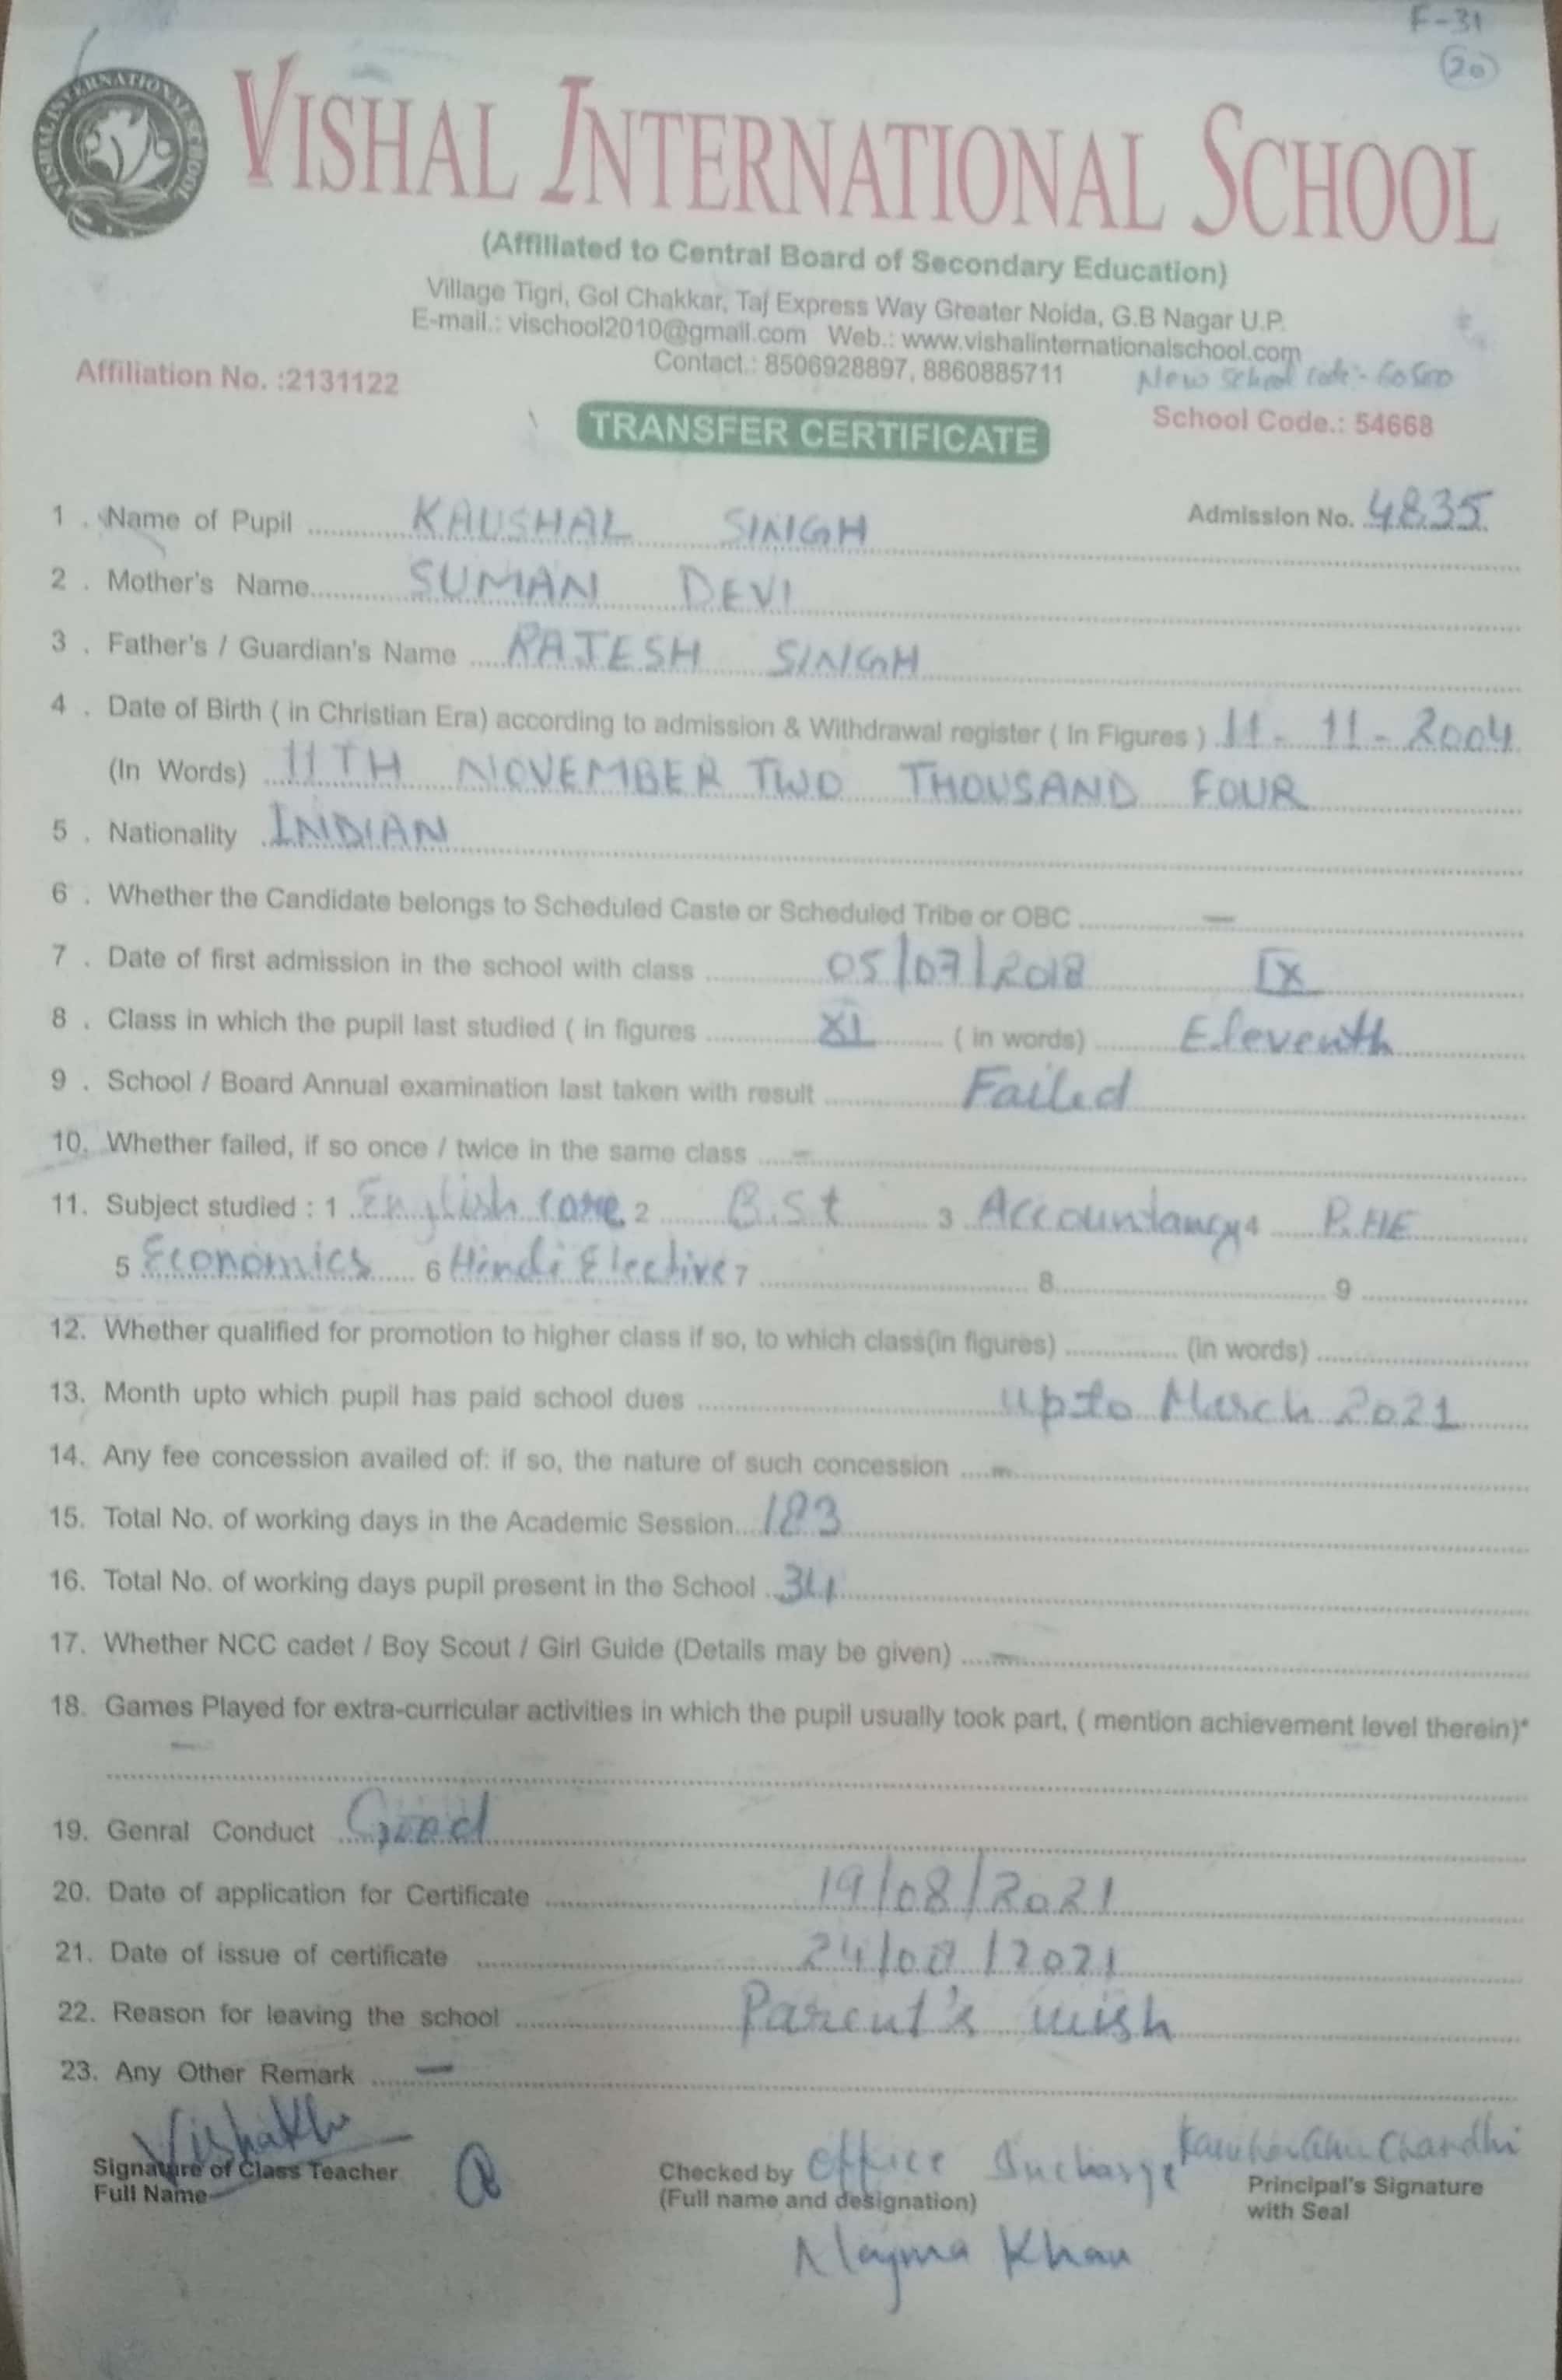 F-31
20
VISHAL INTERNATIONAL SCHOOL
VISHAL INTERNATIONAL SCHOOL
(Affiliated to Central Board of Secondary Education)
Village Tigri, Gol Chakkar, Taj Express Way Greater Noida, G.B Nagar U.P.
E-mail.: vischool2010@gmail.com Web.: www.vishalinternationalschool.com
Contact.: 8506928897, 8860885711
Affiliation No. :2131122
New School Code:- 60500
School Code.: 54668
TRANSFER CERTIFICATE
1 . Name of Pupil KAUSHAL SINGH Admission No. 4835
2 . Mother's Name SUMAN DEVI
3 . Father's / Guardian's Name RAJESH SINGH
4 . Date of Birth ( in Christian Era) according to admission & Withdrawal register ( In Figures ) 11 - 11 - 2004
(In Words) 11TH NOVEMBER TWO THOUSAND FOUR
5 . Nationality INDIAN
6 . Whether the Candidate belongs to Scheduled Caste or Scheduled Tribe or OBC —
7 . Date of first admission in the school with class 05/07/2018 IX
8 . Class in which the pupil last studied ( in figures XI ( in words) Eleventh
9 . School / Board Annual examination last taken with result Failed
10. Whether failed, if so once / twice in the same class -
11. Subject studied : 1 English core 2 B.St 3 Accountancy 4 P.HE
5 Economics 6 Hindi Elective 7 8 9
12. Whether qualified for promotion to higher class if so, to which class(in figures) (in words)
13. Month upto which pupil has paid school dues upto March 2021
14. Any fee concession availed of: if so, the nature of such concession -
15. Total No. of working days in the Academic Session 183
16. Total No. of working days pupil present in the School 34
17. Whether NCC cadet / Boy Scout / Girl Guide (Details may be given) -
18. Games Played for extra-curricular activities in which the pupil usually took part, ( mention achievement level therein)*
—
19. Genral Conduct Good
20. Date of application for Certificate 19/08/2021
21. Date of issue of certificate 24/08/2021
22. Reason for leaving the school Parent's wish
23. Any Other Remark —
Vishakha
Signature of Class Teacher
Full Name
Checked by Office Incharge
(Full name and designation)
Nayma Khan
Chandhi
Principal's Signature
with Seal